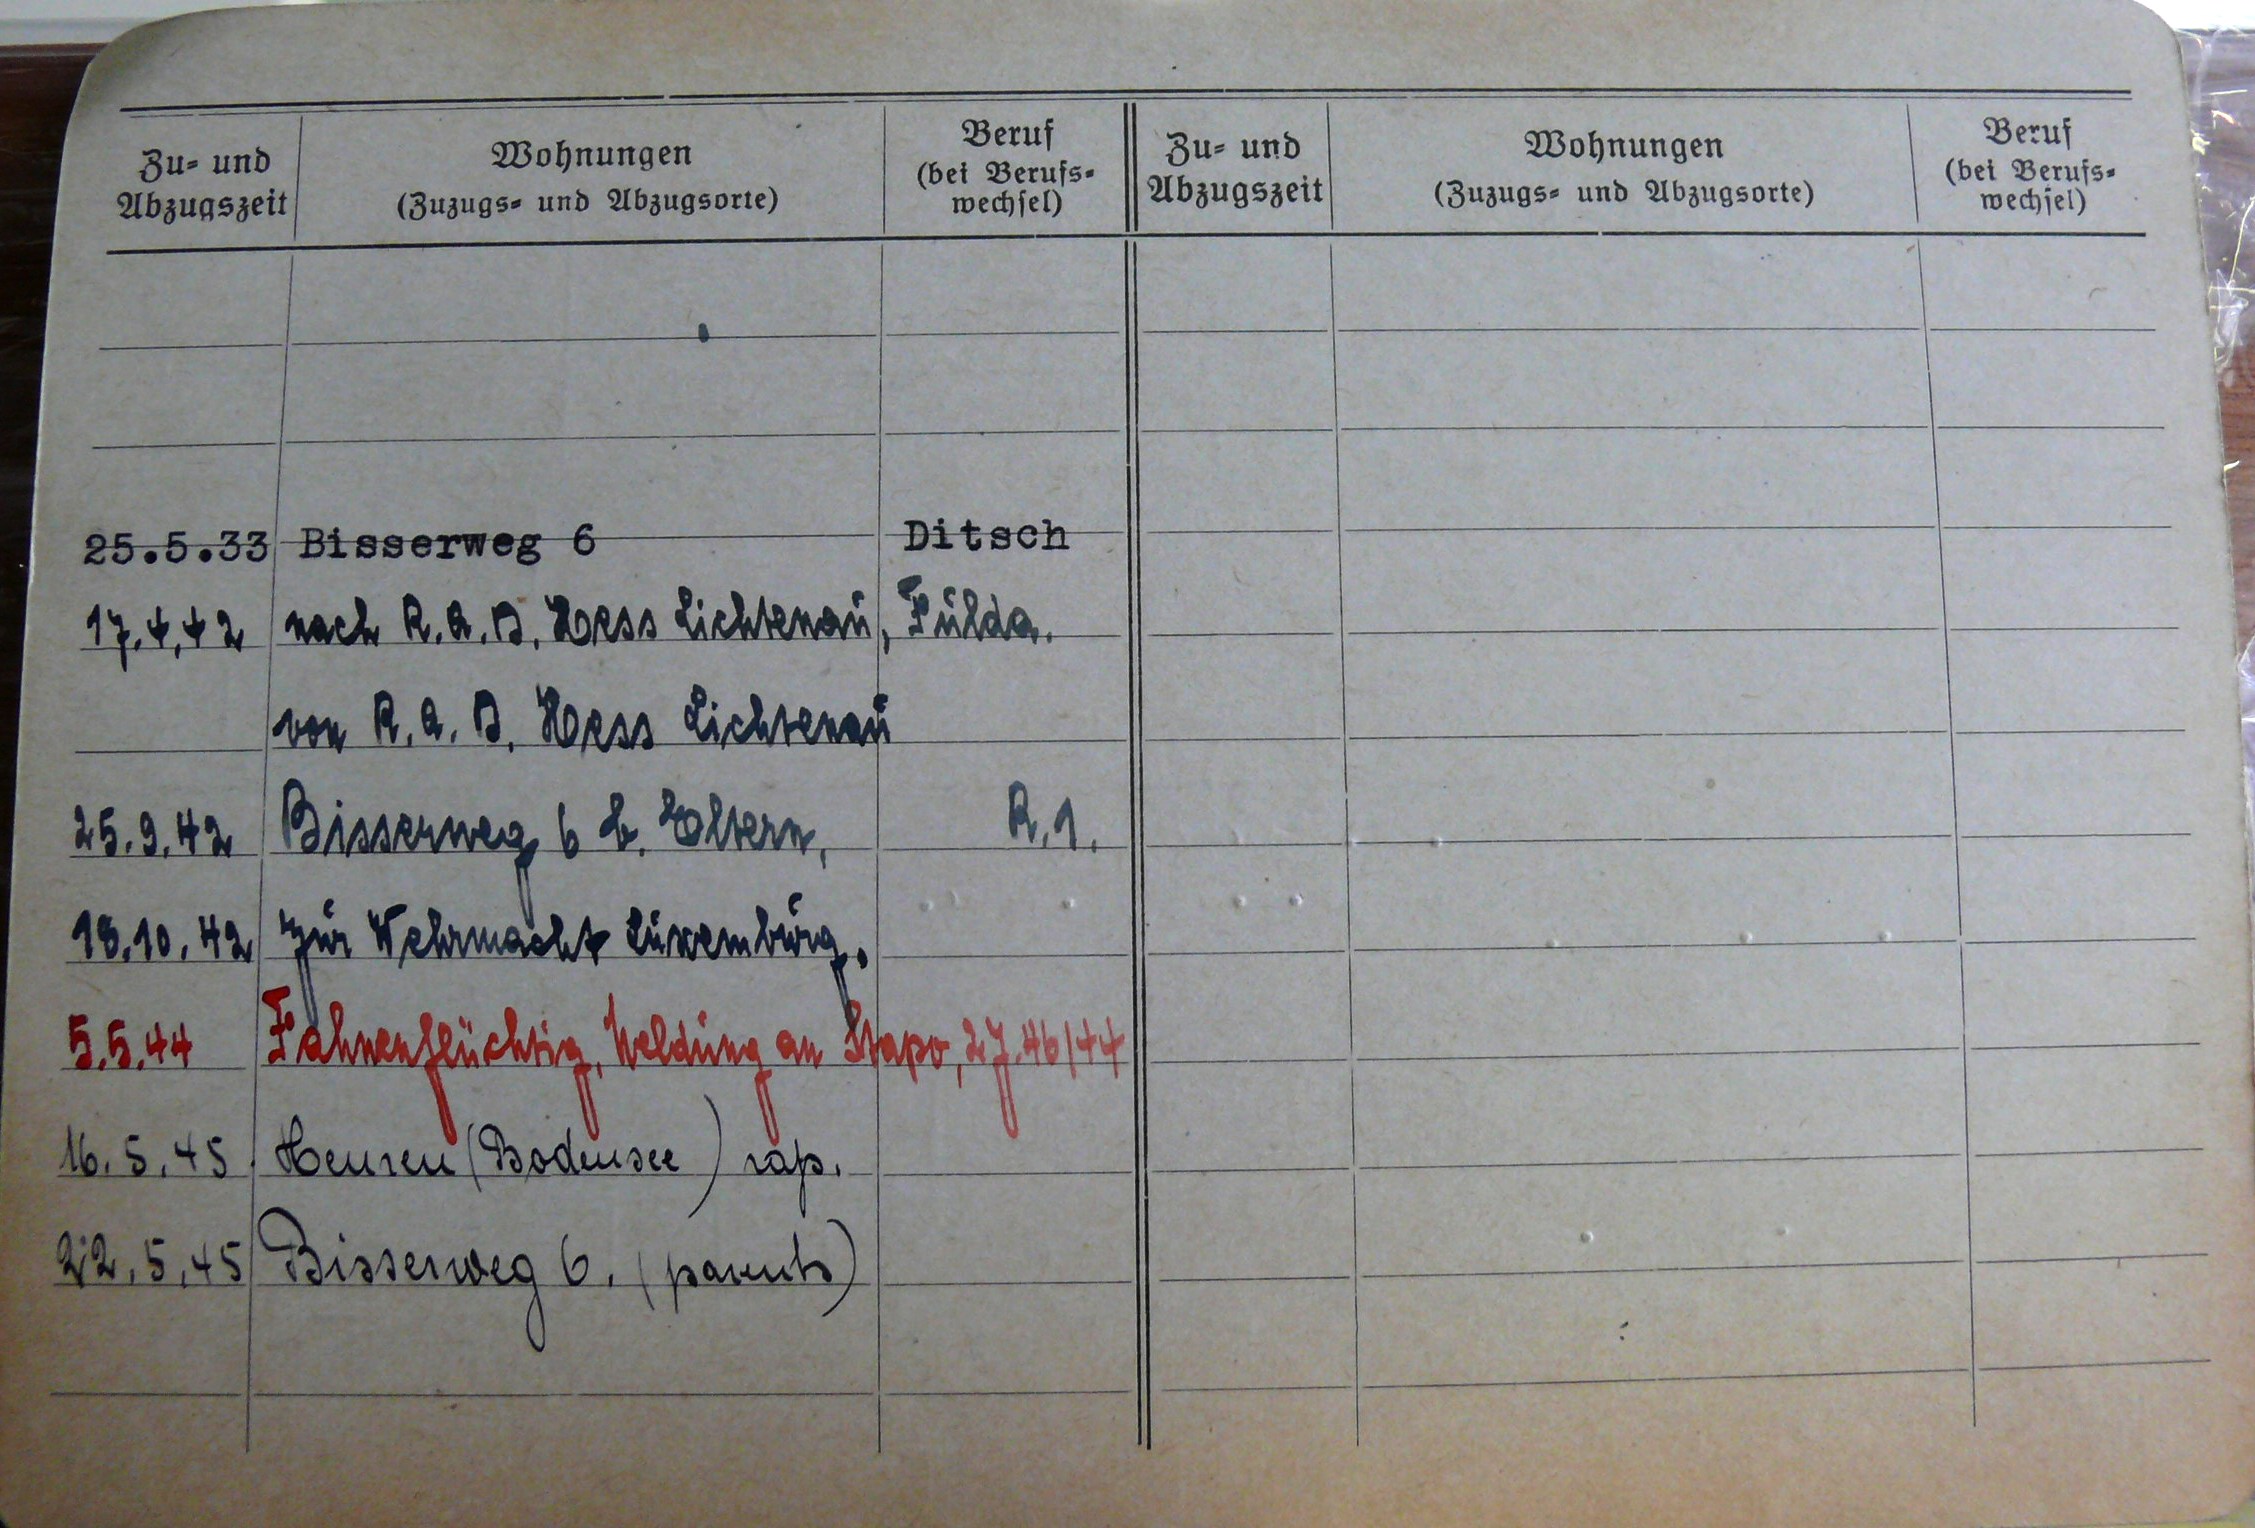 Zu- und Abzugszeit
Wohnungen
(Zuzugs- und Abzugsorte)
Beruf
(bei Berufs-
wechsel)
Zu- und Abzugszeit
Wohnungen
(Zuzugs- und Abzugsorte)
Beruf
(bei Berufs-
wechsel)
25.5.33 Bisserweg 6 Ditsch
17.4.42 nach R.A.D. Hess Lichtenau, Fulda.
von R.A.D. Hess Lichtenau
25.9.42 Bisserweg 6 b. Eltern, R.1.
18.10.42 zur Wehrmacht Luxemburg.
5.5.44 Fahnenflüchtig, Meldung an Stapo, 27.46/44
16.5.45. (Bodensee) rap.
22.5.45 Bisserweg 6. (parents)